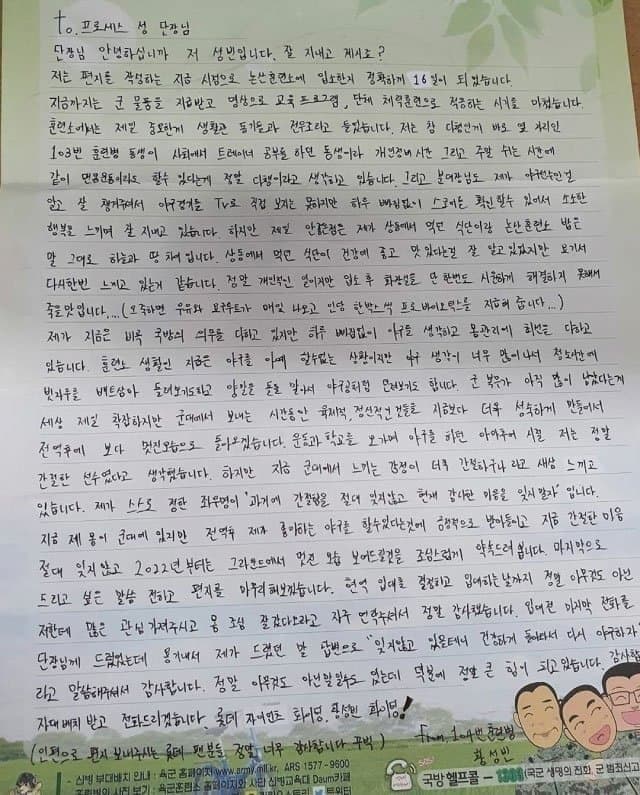 to. 프로세스 성 단장님
단장님 안녕하십니까 저 성빈입니다. 잘 지내고 계시죠?
저는 편지를 작성하는 지금 시점으로 논산훈련소에 입소한지 정확하게 16일이 되었습니다.
지금까지는 군 물품을 지급받고 영상으로 교육 프로그램, 단체 체력훈련으로 적응하는 시기를 마쳤습니다.
훈련소에서는 제일 중요한게 생활관 동기들과 전우조라고 들었습니다. 저는 참 다행인게 바로 옆 자리인
103번 훈련병 동생이 사회에서 트레이너 공부를 하던 동생이라 개인정비시간 그리고 주말 쉬는 시간에
같이 맨몸운동이라도 할수 있다는게 정말 다행이라고 생각하고 있습니다. 그리고 분대장님도 제가 야구선수인걸
알고 잘 챙겨주셔서 야구경기를 TV로 직접 보지는 못하지만 하루 빠짐없이 스코어를 확인할수 있어서 소소한
행복을 느끼며 잘 지내고 있습니다. 하지만 제일 안좋은점은 제가 상동에서 먹던 식단이랑 논산훈련소 밥은
말 그대로 하늘과 땅 차이 입니다. 상동에서 먹던 식단이 건강에 좋고 맛있다는걸 잘 알고있었지만 여기서
다시한번 느끼고 있는거 같습니다. 정말 개인적인 일이지만 입소 후 화장실을 단 한번도 시원하게 해결하지 못해서
죽을맛입니다....(오죽하면 우유와 요구르트가 매일 나오고 인당 한박스씩 프로바이오틱스를 지급해 줍니다...)
제가 지금은 비록 국방의 의무를 다하고 있지만 하루 빠짐없이 야구를 생각하고 몸관리에 최선을 다하고
있습니다. 훈련소 생활인 지금은 야구를 아예 할수없는 상황이지만 야구 생각이 너무 많이나서 청소시간에
빗자루를 배트삼아 돌려보기도하고 양말을 돌돌 말아서 야구공처럼 던져보기도 합니다. 군 복무가 아직 많이 남았다는게
세상 제일 막막하지만 군대에서 보내는 시간동안 육체적, 정신적인 것들로 지금보다 더욱 성숙하게 만들어서
전역후에 보다 멋진모습으로 돌아오겠습니다. 운동과 학교를 오가며 야구를 하던 아마추어 시절 저는 정말
간절한 선수였다고 생각했습니다. 하지만 지금 군대에서 느끼는 감정이 더욱 간절하구나 라고 새삼 느끼고
있습니다. 제가 스스로 정한 좌우명이 '과거에 간절함을 절대 잊지않고 현재 감사한 마음을 잊지말자' 입니다.
지금 제 몸이 군대에 있지만 전역후 제가 좋아하는 야구를 할수있다는것에 긍정적으로 받아들이고 지금 간절한 마음
절대 잊지않고 2022년부터는 그라운드에서 멋진 모습 보여드릴것을 조심스럽게 약속드려 봅니다. 마지막으로
드리고 싶은 말씀 전하고 편지를 마무리해보겠습니다. 현역 입대를 결정하고 입대하는날까지 정말 아무것도 아닌
저한테 많은 관심 가져주시고 몸 조심 잘갔다오라고 자주 연락주셔서 정말 감사했습니다. 입대전 마지막 전화를
단장님께 드렸었는데 용기내서 제가 드렸던 말 답변으로 "잊지않고 있을테니 건강하게 돌아와서 다시 야구하자"
라고 말씀해주셔서 감사합니다. 정말 아무것도 아닌말일수도 있는데 덕분에 정말 큰 힘이 되고있습니다. 감사합
자대 배치 받고 전화드리겠습니다. 롯데 자이언츠 화이팅, 황성빈 화이팅!
(인편으로 편지 보내주시는 롯데 팬분들 정말 너무 감사합니다 꾸벅) From. 104번 훈련병
황성빈
- 신병 부대배치 안내 : 육군 홈페이지 www.army.mil.kr, ARS 1577 - 9600
- 훈련병의 사진 보기 : 육군훈련소 홈페이지와 사단 신병교육대 Daum카페
트위터
SOS!
국방헬프콜 - 1303 (국군 생명의 전화, 군 범죄신고